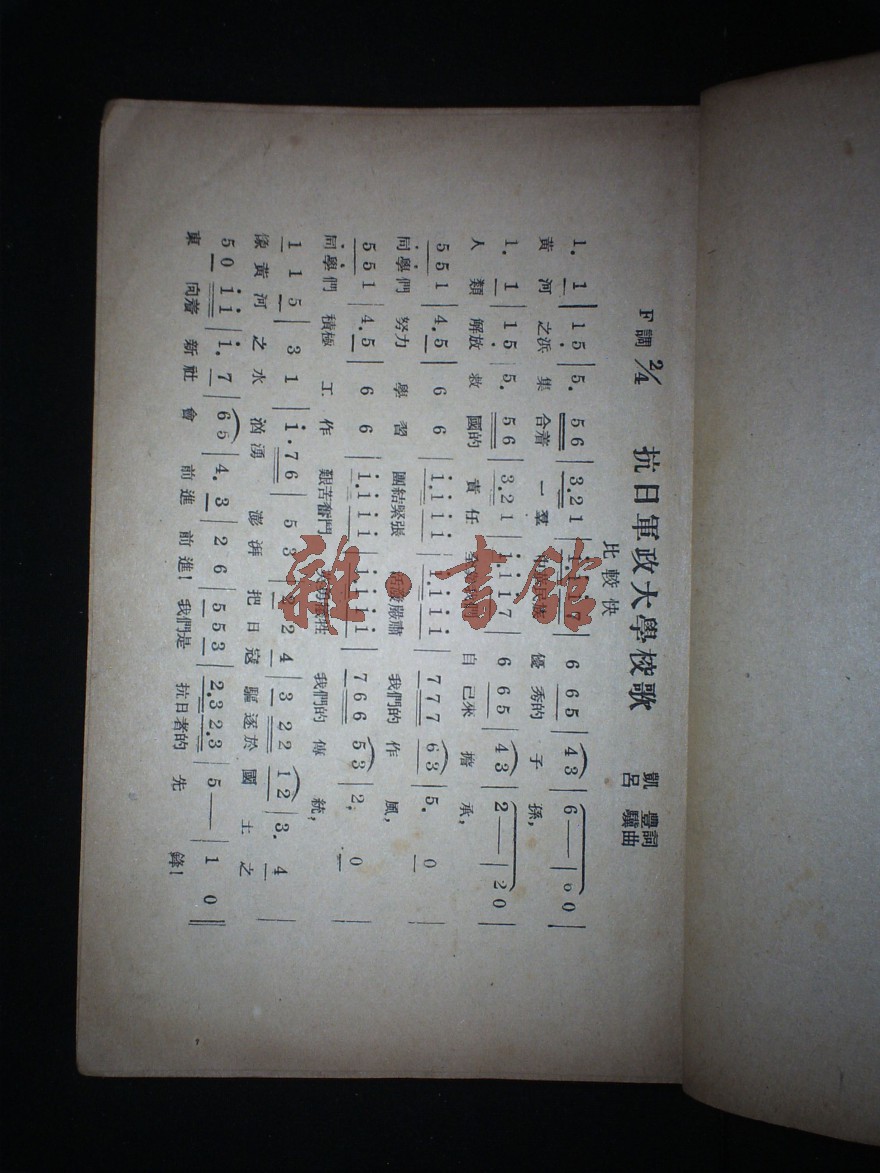 抗日軍政大學校歌
F調 2/4
凱豐詞
呂驥曲
比較快
1. 1 | 1 5 | 5. 5 6 | 3.2 1 | 1.1 1 7 | 6 6 5 | 4 3 | 6 — | 6 0 |
黃河之浜集合着一羣 優秀的子孫,
1. 1 | 1 5 | 5. 5 6 | 3.2 1 | 1.1 1 7 | 6 6 5 | 4 3 | 2 — | 2 0 |
人類解放救國的責任 自己來擔承,
5 5 1 | 4.5 | 6 6 | i.i i i | i.i i i | 7 7 7 | 6 3 | 5. 0 |
同學們努力學習團結緊張 活潑嚴肅我們的作風,
5 5 1 | 4.5 | 6 6 | i.i i i | i.i i i | 7 6 6 | 5 3 | 2. 0 |
同學們積極工作艱苦奮鬥 犧牲我們的傳統,
1 1 5 | 3 1 | i.7 6 | 5 3 | 2 2 4 | 3 2 2 | 1 2 | 3. 4 |
像黃河之水洶湧澎湃把日寇驅逐於國土之
5 0 i i | i. 7 | 6 5 | 4. 3 | 2 6 | 5 5 3 | 2.3 2.3 | 5 — | 1 0 ‖
東向着新社會前進前進!我們是抗日者的先鋒!
雜·書館